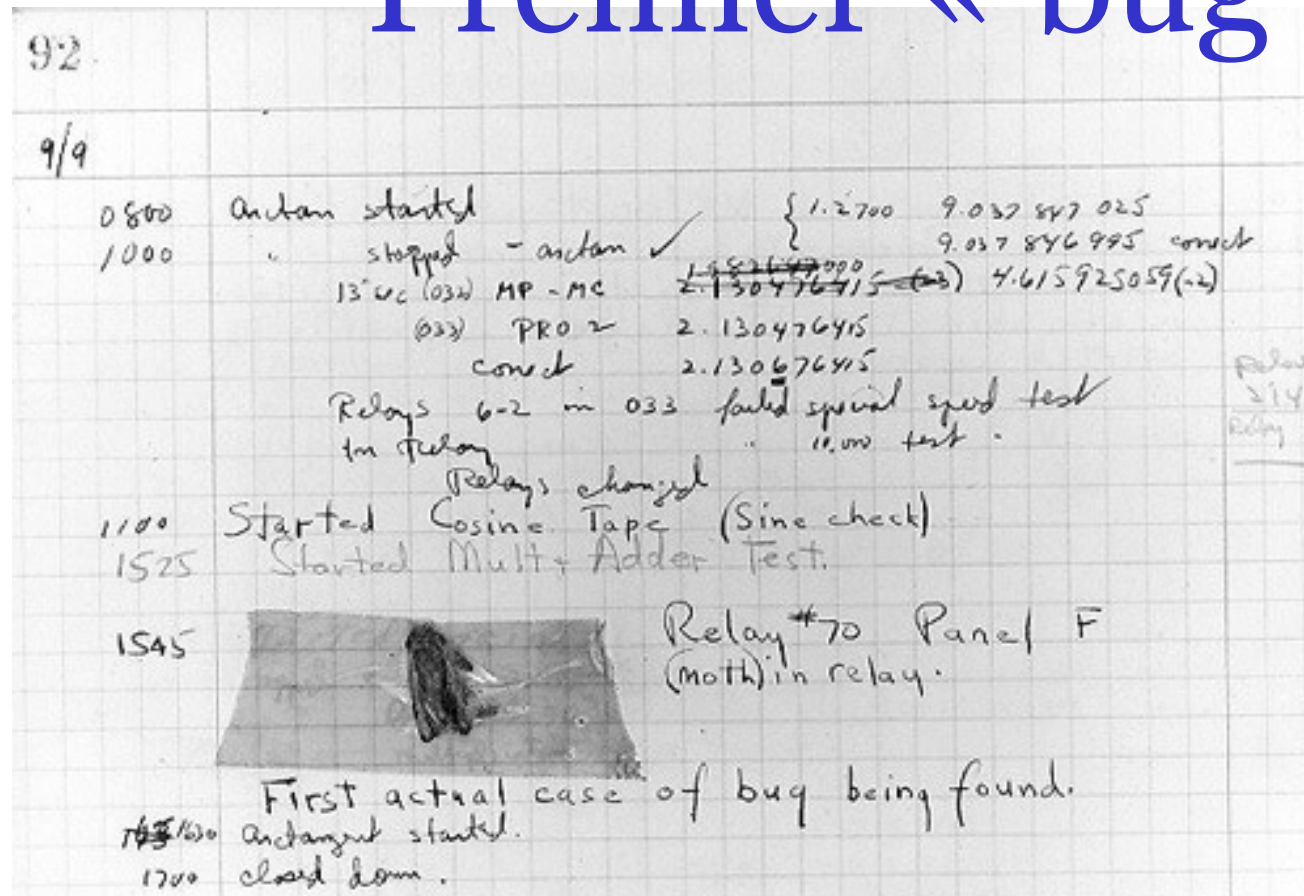 Premier « bug
92
9/9
0800 arctan started { 1.2700 9.037 847 025
1000 " stopped - arctan ✓ 9.037 846 995 correct
13"uc (032) MP - MC 2.130476415 (-3) 4.615925059(-2)
(033) PRO 2 2.130476415
correct 2.130676415
Relays 6-2 in 033 failed special speed test
in relay " 10,000 test .
Relays changed
1100 Started Cosine Tape (Sine check)
1525 Started Mult + Adder Test.
1545 Relay #70 Panel F
(moth) in relay.
First actual case of bug being found.
1630 arctangent started.
1700 closed down.
Relay
Relay